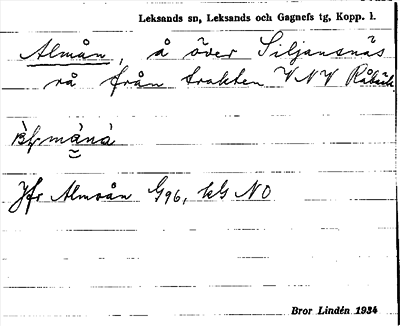 Leksands sn, Leksands och Gagnefs tg, Kopp. l.
Almån, å över Siljansnäs
rå från trakten VNV Råbäck
Jfr Almoån G96, hG NO
Bror Lindén 1934